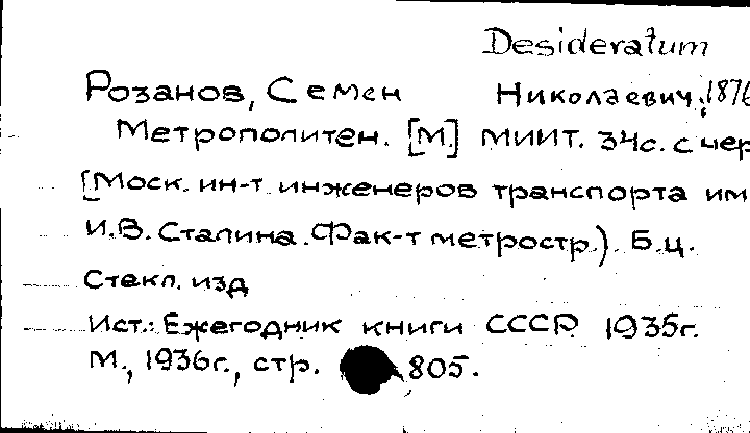 Desideratum
Розанов, Семен Николаевич, 1876
Метрополитен. [М] МИИТ. 34с. с чер
[Моск. ин-т инженеров транспорта им
И.В. Сталина. Фак-т метростр.) Б.ц.
Стекл. изд
Ист.: Ежегодник книги СССР 1935г.
М., 1936г., стр. 805.